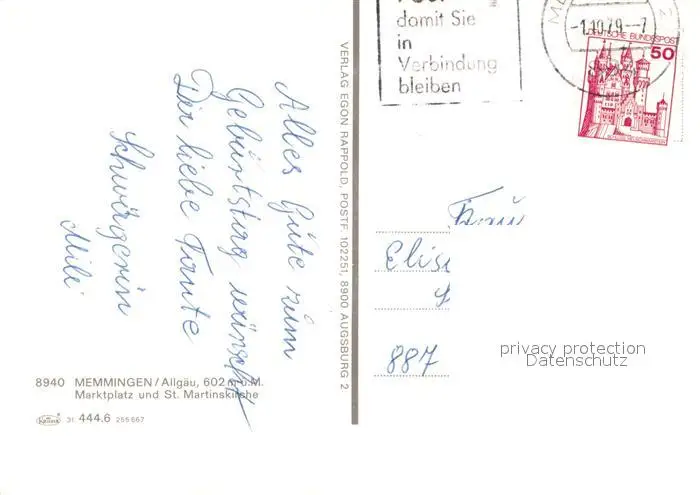 Alles Gute zum
Geburtstag wünscht
Dir liebe Tante
Schwägerin
Mili
8940 MEMMINGEN/Allgäu, 602 m ü.M.
Marktplatz und St. Martinskirche
31 444.6 255 667
VERLAG EGON RAPPOLD, POSTF. 102251, 8900 AUGSBURG 2
damit Sie
in
Verbindung
bleiben
-1.10.79--7
DEUTSCHE BUNDESPOST
50
Frau
Elis
887
privacy protection
Datenschutz